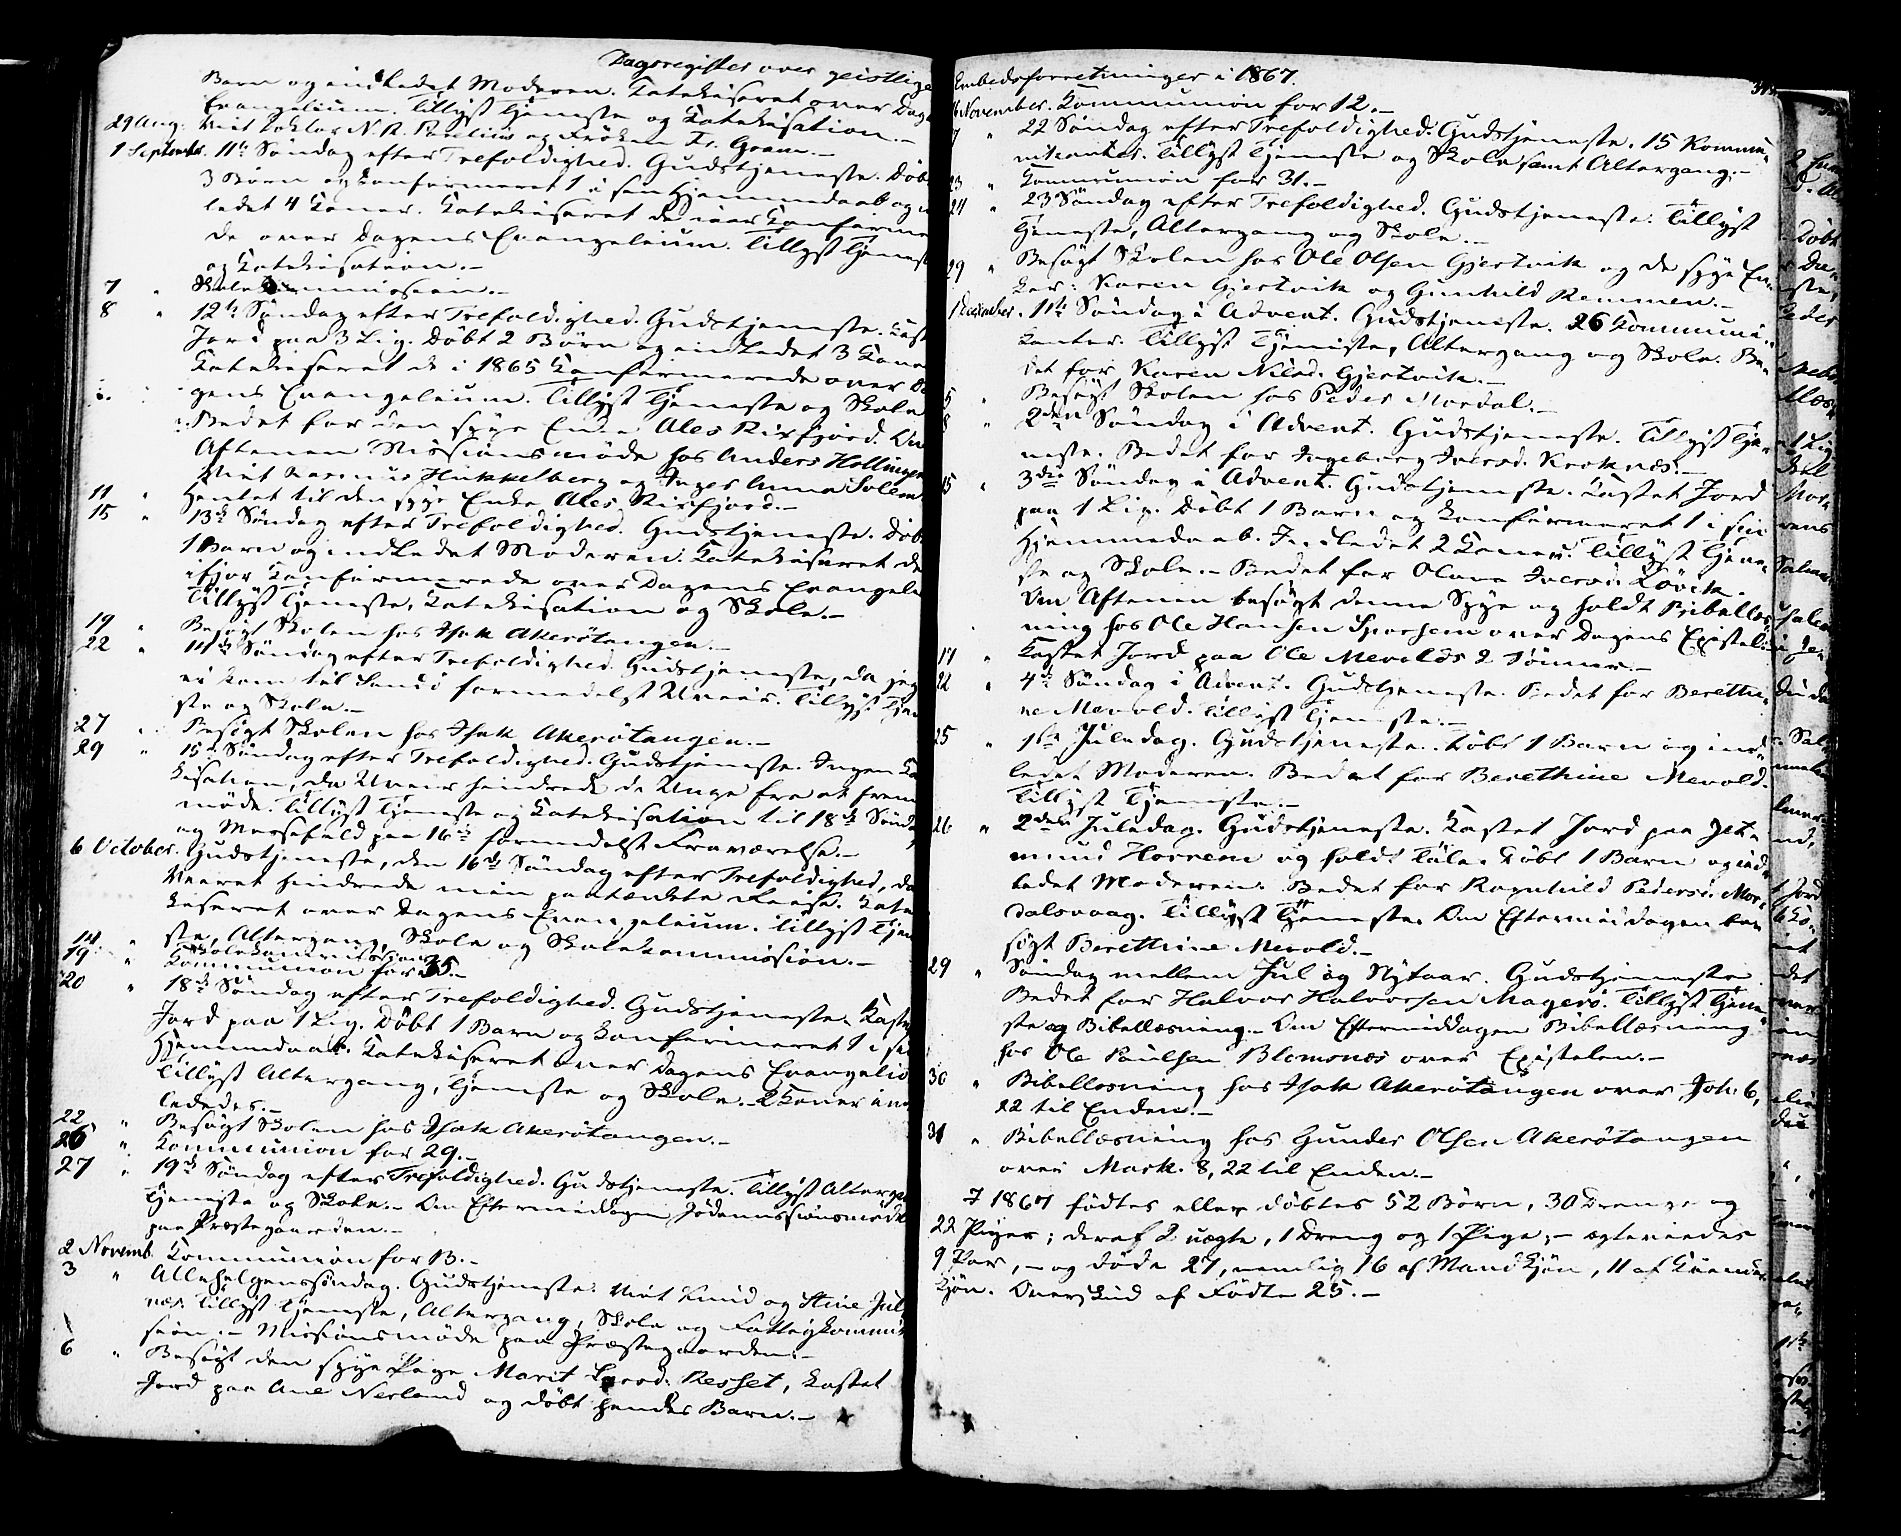 Dagsregister over geistlige
Barn og indledet Moderen. Katekiseret over Dag
Evangelium. Tillyst Tjeneste og Katekisation.-
29 Aug. Viet Doktor N. R. og Frøken Fr. Gram.-
1 September. 11te Søndag efter Trefoldighed. Gudstjeneste. Døbt
3 Børn og konfirmeret 1 i sin Hjemmedaab og
ledet 4 Koner. Katekiseret de iaar Konfirme
de over Dagens Evangelium. Tillyst Tjenest
og Katekisation.-
7 " Skolekommission.-
8 " 12te Søndag efter Trefoldighed. Gudstjeneste. Kast
Jord paa 3 Lig. Døbt 2 Børn og indledet 3 Kone
Katekiseret de i 1865 Konfirmerede over
gens Evangelium. Tillyst Tjeneste og Skole
Bedet for den syge Enke Ales Rirfjord. Om
Aftenen Missionsmøde hos Anders Hollingen
Viet Rasmus Hukkelberg og Inger Anna Solem
11 " Hentet til den syge Enke Ales Rirfjord.-
15 " 13de Søndag efter Trefoldighed. Gudstjeneste. Døb
1 Barn og indledet Moderen. Katekiseret de
ifjor Konfirmerede over Dagens Evangeli
Tillyst Tjeneste, Katekisation og Skole.-
19 " Besøgt Skolen hos Isak Akerøtangen.-
22 " 14de Søndag efter Trefoldighed. Gudstjeneste, da jeg
ei kom til Sandø formedelst Uveir. Tillyst Tjen
ste og Skole.-
27 " Besøgt Skolen hos Isak Akerøtangen.-
29 " 15de Søndag efter Trefoldighed. Gudstjeneste. Ingen Ka
kisation, da Uveir hindrede de Unge fra at frem
møde. Tillyst Tjeneste og Katekisation til 18de Sønd
og Messefald paa 16de formedelst Fraværelse.-
6 October. Gudstjeneste, den 16de Søndag efter Trefoldighed, da
Veiret hindrede min paatænkte Reise. Kate
kiseret over Dagens Evangelium. Tillyst Tjen
ste, Altergang, Skole og Skolekommission.-
14 " Skolekommission
19 " Kommunion for 35.-
20 " 18de Søndag efter Trefoldighed. Gudstjeneste. Kaste
Jord paa 1 Lig. Døbt 1 Barn og konfirmeret 1 i si
Hjemmedaab. Katekiseret over Dagens Evangeliu
Tillyst Altergang, Tjeneste og Skole.- 2 Koner ind
lededes.-
22 " Besøgt Skolen hos Isak Akerøtangen.-
26 " Kommunion for 29.-
27 " 19de Søndag efter Trefoldighed. Gudstjeneste. Tillyst Alterga
Tjeneste og Skole.- Om Eftermiddagen Jødemissionsmøde
paa Præstegaarden.-
2 Novemb. Kommunion for 13.-
3 " Allehelgenssøndag. Gudstjeneste. Viet Knud og Stine Jul
næs. Tillyst Tjeneste, Altergang, Skole og Fattigkommis
sion.- Missionsmøde paa Præstegaarden.-
6 " Besøgt den syge Pige Marit Resset, kastet
Jord paa Ane Nerland og døbt hendes Barn.-
Embedsforretninger i 1867.
November. Kommunion for 12.-
" 22 Søndag efter Trefoldighed. Gudstjeneste. 15 Kommu-
nikanter. Tillyst Tjeneste og Skole samt Altergang.-
23 " Kommunion for 31.-
24 " 23 Søndag efter Trefoldighed. Gudstjeneste. Tillyst
Tjeneste, Altergang og Skole.-
29 " Besøgt Skolen hos Ole Olsen Gjertvik og de syge En-
ker: Karen Gjertvik og Gunhild Remmen.-
1 December. 1ste Søndag i Advent. Gudstjeneste. 26 Kommuni-
kanter. Tillyst Tjeneste, Altergang og Skole. Be-
det for Karen Nilsd. Gjertvik.-
5 " Besøgt Skolen hos Peder Mordal.-
8 " 2den Søndag i Advent. Gudstjeneste. Tillyst Tje-
neste. Bedet for Ingeborg Iversd. Kroknæs.-
15 " 3die Søndag i Advent. Gudstjeneste. Kastet Jord
paa 1 Lig. Døbt 1 Barn og konfirmeret 1 i sin
Hjemmedaab. Indledet 2 Koner. Tillyst Tjene-
ste og Skole.- Bedet for Olava Iversd. Løvik.
Om Aftenen besøgt denne Syge og holdt Bibellæs-
ning hos Ole Hansen over Dagens Epistel.
17 " Kastet Jord paa Ole Mevolds 2 Sønner.-
22 " 4de Søndag i Advent. Gudstjeneste. Bedet for Berethi-
ne Mevold. Tillyst Tjeneste.-
25 " 1ste Juledag. Gudstjeneste. Døbt 1 Barn og ind-
ledet Moderen. Bedet for Berethine Mevold.
Tillyst Tjeneste.-
26 " 2den Juledag. Gudstjeneste. Kastet Jord paa Get-
mund Horrem og holdt Tale. Døbt 1 Barn og ind-
ledet Moderen. Bedet for Ragnhild Pedersd. Mor-
dalsvaag. Tillyst Tjeneste. Om Eftermiddagen be-
søgt Berethine Mevold.-
29 " Søndag mellem Jul og Nytaar. Gudstjeneste
Bedet for Halvor Halvorsen Magerø. Tillyst Tjene-
ste og Bibellæsning.- Om Eftermiddagen Bibellæsning
hos Ole Paulsen Blomsnæs over Epistelen.-
30 " Bibellæsning hos Isak Akerøtangen over Joh: 6,
22 til Enden.-
31 " Bibellæsning hos Gunder Olsen Akerøtangen
over Mark. 8, 22 til Enden.-
I 1867 fødtes eller døbtes 52 Børn, 30 Drenge og
22 Piger; deraf 2 uægte, 1 Dreng og 1 Pige;- ægteviedes
9 Par,- og døde 27, nemlig 16 af Mandkjøn, 11 af Kvinde-
kjøn. Overskud af Fødte 25.-